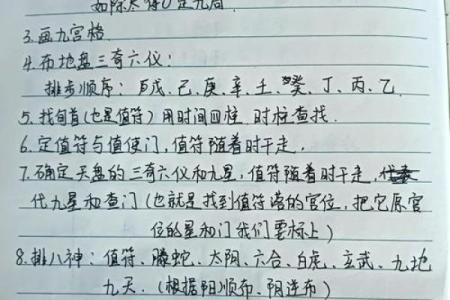 如除尽得0定九局
3.画九宫格
4.布地盘三奇六仪：
排步顺序：戊、己、庚、辛、壬、癸、丁、丙、乙
5.找旬首(也是值符)用时间四柱.时柱查找.
6.定值符与值使门,值符随着时干走.
7.确定天盘的三奇六仪和九星,值符随着时干走,
代九星和查门(也就是找到值符落的宫位,把它原宫
位的星和门我们要标上)
8.排八神：值符、螣蛇、太阴、六合、白虎、玄武、九地
九天.(根据阳顺布、阴逆布)